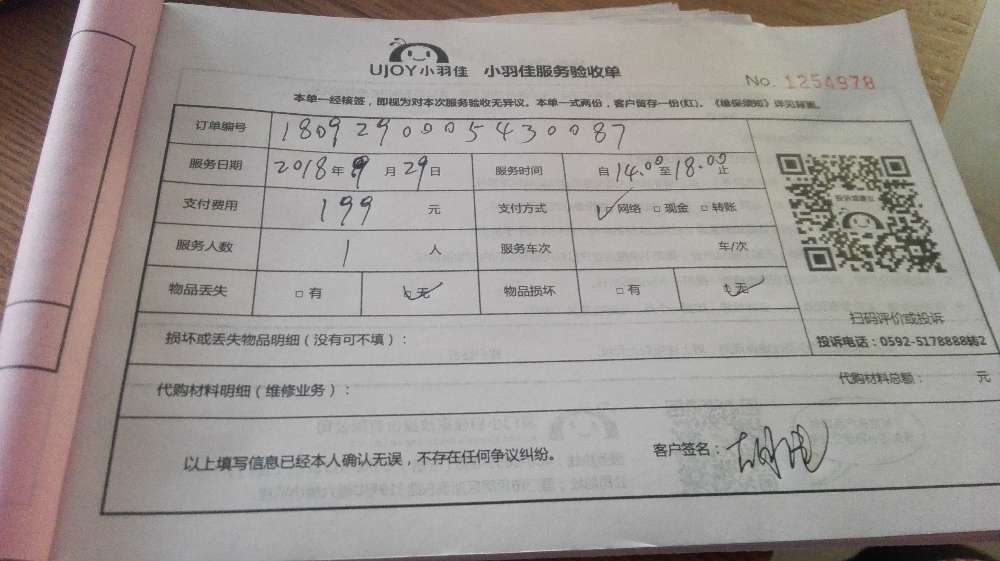 UJOY小羽佳 小羽佳服务验收单
No. 1254978
本单一经核签，即视为对本次服务验收无异议。本单一式两份，客户留存一份(红)。《维保须知》详见背面。
订单编号 1809290005430087
服务日期 2018年9月29日 服务时间 自14.00至18.00止
支付费用 199元 支付方式 ☑网络 □现金 □转账
服务人数 1人 服务车次 车/次
物品丢失 □有 ☑无 物品损坏 □有 ☑无
投诉或建议
扫码评价或投诉
投诉电话：0592-5178888转2
损坏或丢失物品明细（没有可不填）：
代购材料明细（维修业务）： 代购材料总额： 元
以上填写信息已经本人确认无误，不存在任何争议纠纷。 客户签名：